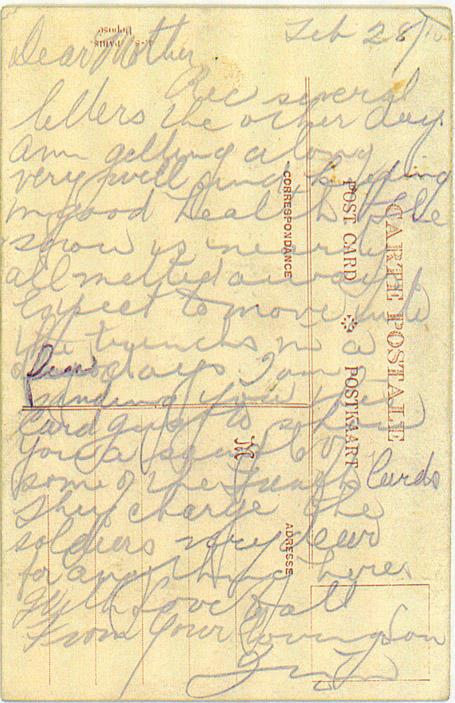 Feb 28
Dear Mother
Rec several
letters the other day.
am getting along
very well and keeping
in good health. The
snow is nearly
all melted away
Expect to move into
the trenches in a
few days I am
sending you this
Card just to show
you a
some of the Cards
They charge the
soldiers very dear
for any thing here
With love to all
From your loving son
CARTE POSTALE
POST CARD POSTKAART
CORRESPONDANCE
M
ADRESSE
PARIS
Déposé